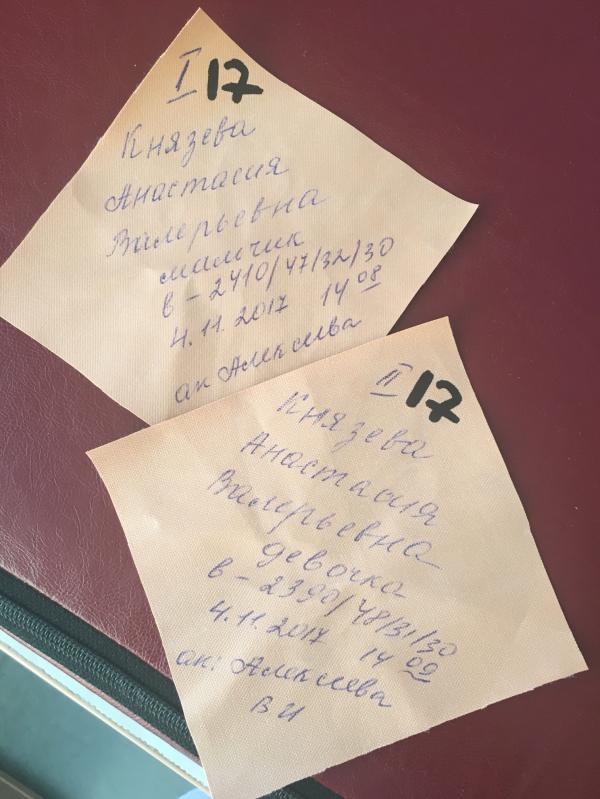 I 17
Князева
Анастасия
Валерьевна
мальчик
в - 2410/47/32/30
4.11.2017 14 08
ак Алексеева
II 17
Князева
Анастасия
Валерьевна
девочка
в - 2390/48/31/30
4.11.2017 14 09
ак: Алексеева
В И